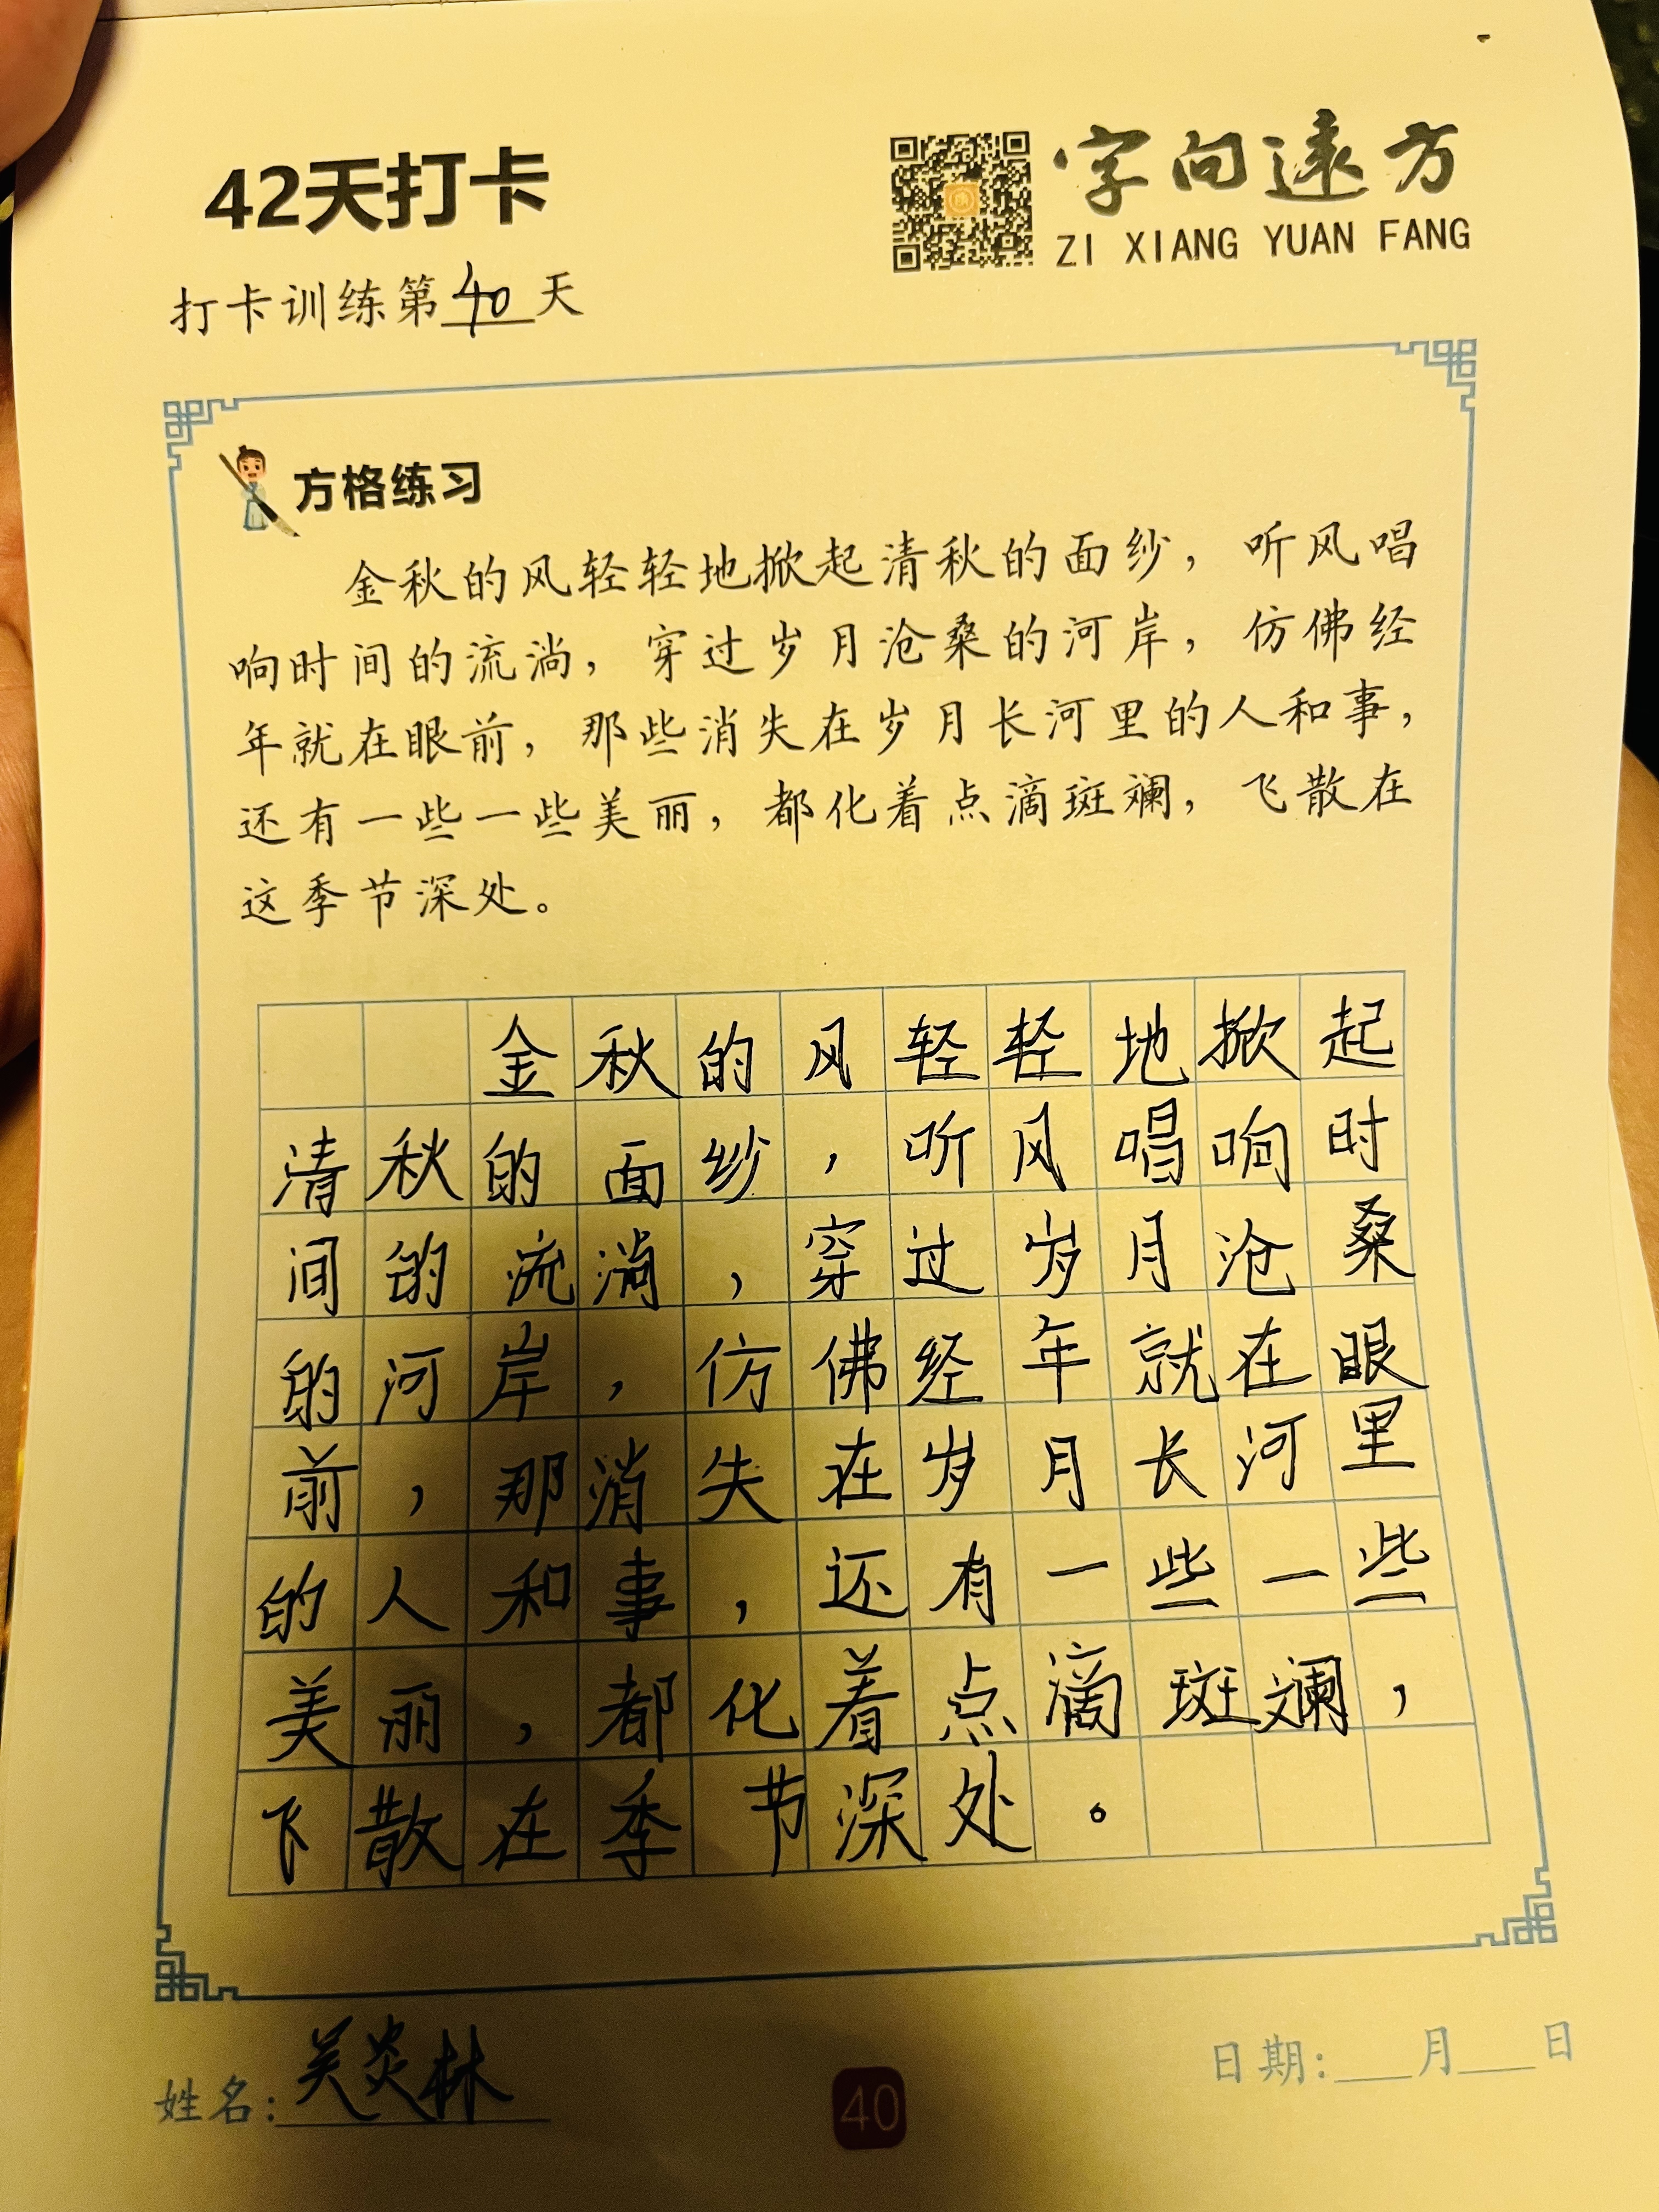 42天打卡
字向远方
ZI XIANG YUAN FANG
打卡训练第40天
方格练习
金秋的风轻轻地掀起清秋的面纱，听风唱
响时间的流淌，穿过岁月沧桑的河岸，仿佛经
年就在眼前，那些消失在岁月长河里的人和事，
还有一些一些美丽，都化着点滴斑斓，飞散在
这季节深处。
金秋的风轻轻地掀起
清秋的面纱，听风唱响时
间的流淌，穿过岁月沧桑
的河岸，仿佛经年就在眼
前，那消失在岁月长河里
的人和事，还有一些一些
美丽，都化着点滴斑斓，
飞散在季节深处。
姓名：吴炎林
40
日期：___月___日